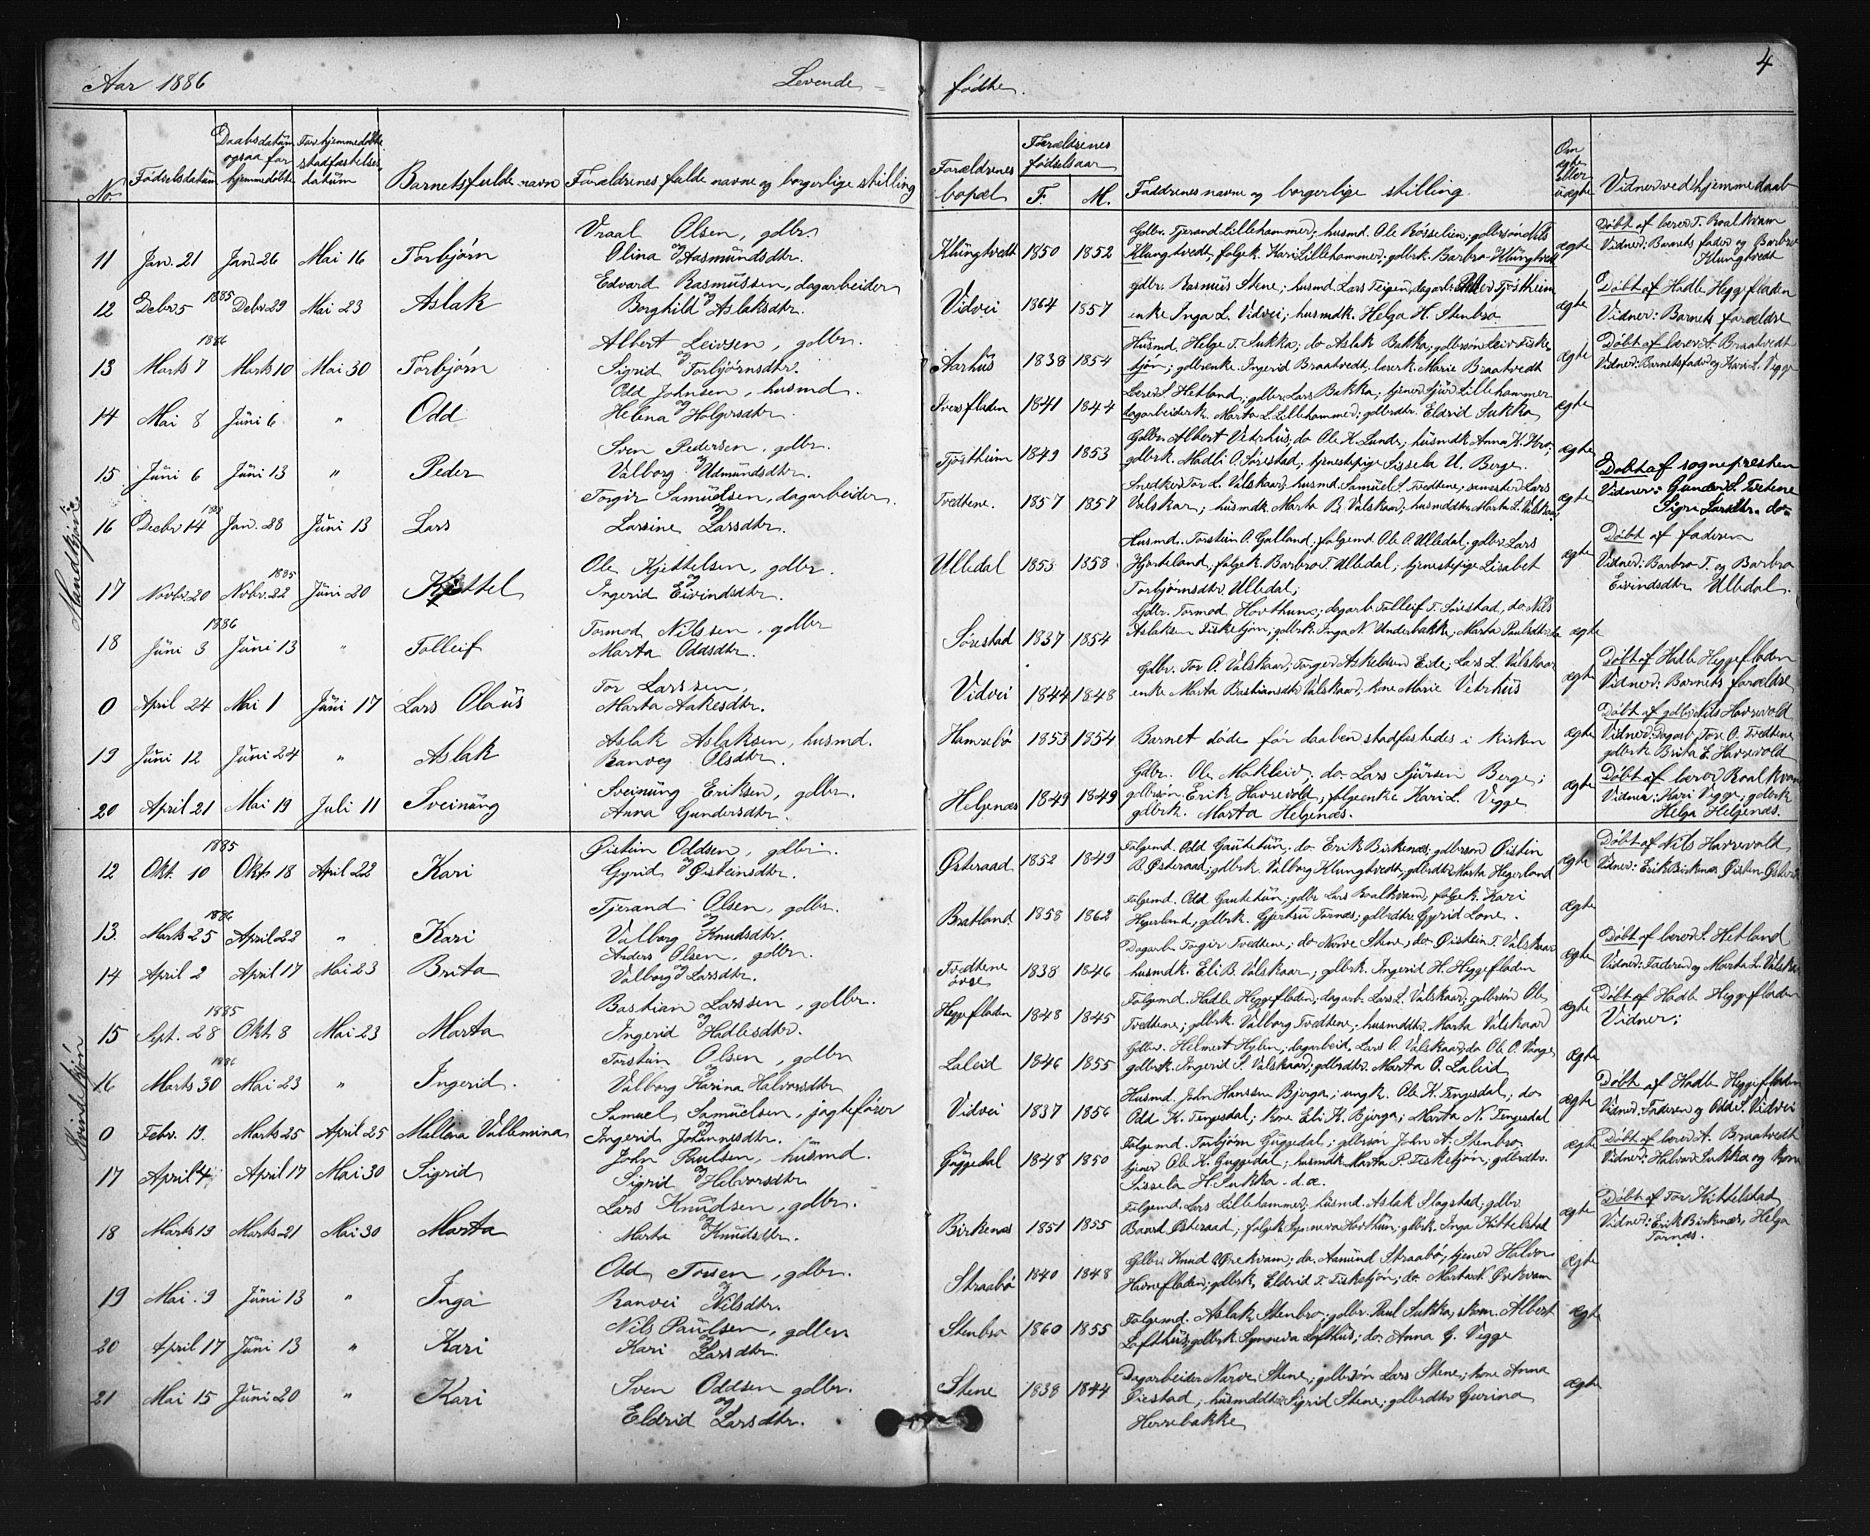 4
Aar 1886 Levende = fødte.
No. Fødselsdatum Daabsdatum ogsaa for hjemmedøbte For hjemmedøbte stadfæstelsesdatum Barnets fulde navn Forældrenes fulde navne og borgerlige stilling Forældrenes bopæl Forældrenes fødselsaar F. M. Faddrenes navne og borgerlige stilling. Om ægte eller uægte Vidner ved hjemmedaab
Mandkjøn
11 Jan. 21 Jan. 26 Mai 16 Torbjørn Vraal Olsen, gdbr. og Olina Aasmundsdtr. Klungtvedt 1850 1852 Gdbr. Tjerand Lillehammer; husmd. Ole Røsselien; gdbrsøn Nils Klungtvedt, folgek. Kari Lillehammer; gdbrk. Barbro Klungtvedt ægte Døbt af lærer T. Roalkvam Vidner: Barnets fader og Barbro Klungtvedt
12 Debr 5 1885 Debr 29 Mai 23 Aslak Edvard Rasmussen, dagarbeider og Borghild Aslaksdtr. Vidvei 1864 1857 gdbr. Rasmus Stene; husmd. Lars Teigen, dagarb. Tjøstheim enke Inga L. Vidvei; husmdk. Helga H. Stenbro ægte Døbt af Hadle Heggefladen Vidner: Barnets forældre
13 1886 Marts 7 Marts 10 Mai 30 Torbjørn Albert Leivsen, gdbr. og Sigrid Torbjørnsdtr. Aarhus 1838 1854 Husmd. Helge T. Sukka; do Aslak Bakka; gdbrsøn Leiv Fisketjøn; gdbrenke. Ingerid Braatvedt, lærerk. Marie Braatvedt ægte Døbt af lærer A. Braatvedt Vidner: Barnets fader og Kari L. Vigge
14 Mai 8 Juni 6 " Odd Odd Johnsen, husmd. og Helena Holgersdtr. Iversfladen 1841 1844 Lærer S. Hetland; gdbr. Lars Bakka; tjener Sjur Lillehammer dagarbeiderk. Marta L. Lillehammer; gdbrdtr. Eldrid Sukka ægte
15 Juni 6 Juni 13 " Peder Sven Pedersen, gdbr. og Valborg Udmundsdtr. Tjøstheim 1849 1853 Gdbr. Albert Vetrhus, do Ole K. Lunde; husmdk Anna K. Hro; gdbrk. Madli O. Sørestad; tjenestepige Sissela U. Berge. ægte
16 Decbr 14 Jan. 28 Juni 13 Lars Torgir Samuelsen, dagarbeider og Larsine Larsdtr. Tvedtene. 1857 1857 Snedker Tor L. Valskaar; husmd. Samuel S. Tvedtene; Lars Valskar; husmdk. Marta B. Valskaar; husmddtr. Marta L. Valskaar ægte Døbt af sogneprsten Vidner: Gunder S. Tvetene Sigri Larsdtr. do
17 Novbr. 20 1885 Novbr. 22 Juni 20 Kjettel Ole Kjettelsen, gdbr. og Ingerid Eivindsdtr. Ulledal 1853 1858 Husmd. Torstein O. Galland, folgemd. Ole O. Ulledal; gdbr. Lars Hjorteland; folgek. Barbro T. Ulledal; tjenestepige Lisabet Torbjørnsdtr. Ulledal; ægte Døbt af faderen Vidner: Barbro T. og Barbro Eivindsdtr. Ulledal.
18 1886 Juni 3 Juni 13 " Tolleif Tormod Nilssen, gdbr og Marta Oddsdtr. Sørestad 1837 1854 Gdbr. Tormod Hovthun; dagarb. Tolleif T. Sørestad, do. Nils Aslaksen Fisketjøn; gdbrk. Inga N. Underbakke; Marta Paulsdtr. do ægte
0 April 24 Mai 1 Juni 17 Lars Olaus Tor Larssen, Marta Aakesdtr. Vidvei 1844 1848 Gdbr. Tor O. Valskaar; Torger Askeldsen Eide; Lars L. Valskaar enke Marta Bastiansdtr. Valskaar; kone Marie Vetrhus ægte Døbt af Hadle Heggefladen Vidner: Barnets forældre
19 Juni 12 Juni 24 " Aslak Aslak Aslaksen, husmd. Ranveg Olsdtr. Hamrebø 1853 1854 Barnet døde før daaben stadfæstedes i kirken ægte Døbt af gdbr. Nils Havrevold Vidner: dagarb. Tor O. Tvedtene gdbrk Brita E. Havrevold
20 April 21 Mai 19 Juli 11 Sveinung Sveinung Eriksen, gdbr. Anna Gundersdtr. Helgenæs 1849 1849 Gdbr. Ole Mokleiv; do Lars Sjursen Berge; gdbrsøn. Erik Havrevold; folgeenke Kari L. Vigge gdbrk. Marta Helgenæs. ægte Døbt af lærer Roalkvam Vidner: Kari Vigge; gdbrk Helga Helgenæs.
Kvindekjøn
12 1885 Okt. 10 Okt. 18 April 22 Kari Øistein Oddsen, gdbr. og Gyrid Øisteinsdtr. Østeraad 1852 1849 Folgemd. Odd Gautetun; do. Erik Birkenæs; gdbrsøn Øistein B. Østeraad; gdbrk. Valborg Klungtvedt; gdbrdtr. Marta Hegerland ægte Døbt af Nils Havrevold Vidner: Erik Birkenæs Øisten Østeraad
13. 1886 Marts 25 April 22 " Kari Tjerand Olsen, gdbr. og Valborg Knudsdtr. Bratland 1858 1862 Folgemd. Odd Gautetun; gdbr Lars Roalkvam; folgek. Kari Hegerland; gdbrk. Gjertru Tornæs; gdbrdtr. Gyrid Lone. ægte
14 April 2 April 17 Mai 23 Brita Anders Olsen, gdbr. og Valborg Larsdtr. Tvedtene øvre 1838 1846 Dagarb. Torgir Tvedtene; do Narve Stene, do Øistein T. Valskaar husmdk. Eli B. Valskaar, gdbrk. Ingerid H. Heggefladen ægte Døbt af lærer S. Hetland Vidner: Faderen og Marta L. Valskar
15 1885 Sept. 28 Okt. 8 Mai 23 Marta Bastian Larssen, gdbr. og Ingerid Hadlesdtr. Heggefladen 1848 1845 Folgemd. Hadle Heggefladen; dagarb. Lars L. Valskaar, gdbrsøn Ole Tvedtene; gdbrk. Valborg Tvedtene; husmddtr. Marta Valskaar ægte Døbt af Hadle Heggefladen Vidner:
16 1886 Marts 30 Mai 23 " Ingerid. Torstein Olsen, gdbr og Valborg Karina Halvorsdtr Laleid 1846 1855 Gdbr. Helmert Hylen; dagarbeid. Lars O. Valskaar, do Ole O. Vaage gdbrk. Ingerid S. Valskaar; gdbrdtr. Marta O. Laleid ægte
0 Febr. 19. Marts 25 April 25 Mallena Vallemina Samuel Samuelsen, jagtefører og Ingerid Johannesdtr. Vidvei 1837 1856 Husmd. John Hanssen Bjorga; ungk. Ole K. Tengesdal, do Odd K. Tengesdal; kone Eli K. Bjorga; Marta N. Tengesdal ægte Døbt af Hadle Heggefladen Vidner: Faderen og Odd S. Vidvei
17 April 4 April 17 Mai 30 Sigrid John Paulsen, husmd. og Sigrid Helvorsdtr Guggedal 1848 1850 Folgemd. Torbjørn Guggedal; gdbrsøn John A. Stenbro tjener Ole K. Guggedal; husmdk. Marta P. Fisketjøn; gdbrdtr. Sissela H. Sukka d.æ. ægte Døbt af lærer A. Braatvedt Vidner: Halvor Sukka og kone
18 Marts 19 Marts 21 Mai 30 Marta Lars Knudsen, gdbr. og Marta Knudsdtr. Birkenæs 1851 1855 Folgemd. Lars Lillehammer; husmd. Aslak Stogstad; gdbr. Baard Østeraad; folgek Synneva Hovthun; gdbrk. Inga Kittelstad ægte Døbt af Tor Kittelstad Vidner: Erik Birkenæs, Helga Tornæs.
19 Mai 9 Juni 13 " Inga Odd Torsen, gdbr. og Ranvei Nilsdtr. Straabø 1840 1848 Gdbr. Knud Ørekvam; do. Asmund Straabø; tjener Halvor Havrefladen; gdbrk. Eldrid T. Fisketjøn; do Marta K. Ørekvam ægte
20 April 17 Juni 13 " Kari Nils Paulsen, gdbr og Kari Larsdtr. Stenbro 1860 1855 Folgemd. Aslak Stenbro; gdbr. Paul Sukka, skom. Albert Lofthus; gdbrk Synneva Lofthus; do Anna G. Vegge ægte
21 Mai 15 Juni 20 " Kari Sven Oddsen gdbr. og Eldrid Larsdtr. Stene 1838 1844 Dagarbeider Narve Stene; gdbrsøn Lars Stene; kone Anna Øiestad; husmddtr Sigrid Stene; gdbrdtr Gurina Herrebakke ægte